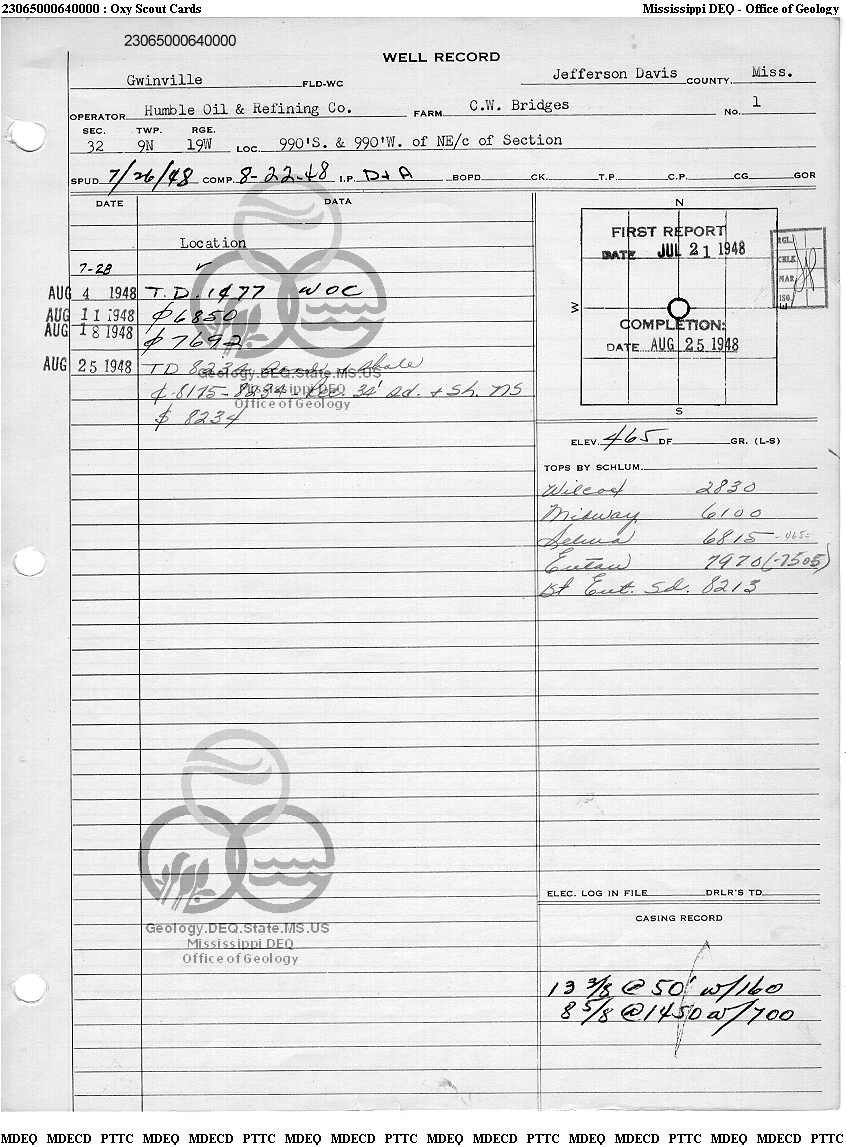 23065000640000 : Oxy Scout Cards Mississippi DEQ - Office of Geology
23065000640000
WELL RECORD
Gwinville FLD-WC Jefferson Davis COUNTY, Miss.
OPERATOR Humble Oil & Refining Co. FARM C.W. Bridges No. 1
SEC. TWP. RGE.
32 9N 19W LOC. 990'S. & 990'W. of NE/c of Section
SPUD 7/26/48 COMP. 8-22-48 I.P. D+A BOPD CK. T.P. C.P. CG GOR
DATE DATA
N
FIRST REPORT
DATE JUL 21 1948
RGL.
CHLK
MAR.
ISO.
Location
7-28 ✓
AUG 4 1948 T.D. 1477 WOC
AUG 11 1948 6850
AUG 18 1948 7692
W E
COMPLETION:
DATE AUG 25 1948
AUG 25 1948 TD 8234 Sand + Shale
8175-8234 - Rec. 34' sd. + Sh. NS
8234
Geology.DEQ.State.MS.US
Mississippi DEQ
Office of Geology
S
ELEV. 465 DF GR. (L-S)
TOPS BY SCHLUM.
Wilcox 2830
Midway 6100
Selma 6815 -465=
Eutaw 7970 (-7505)
1st Eut. Sd. 8213
Geology.DEQ.State.MS.US
Mississippi DEQ
Office of Geology
ELEC. LOG IN FILE DRLR'S TD
CASING RECORD
13 3/8 @ 50' w/160
8 5/8 @ 1450 w/700
MDEQ MDECD PTTC MDEQ MDECD PTTC MDEQ MDECD PTTC MDEQ MDECD PTTC MDEQ MDECD PTTC MDEQ MDECD PTTC